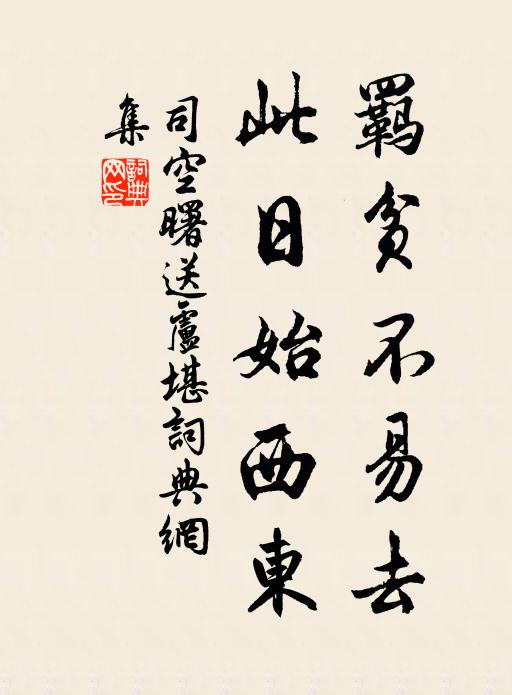 羈貧不易去
此日始西東
司空曙送盧堪詞典網
集
詞典
网印